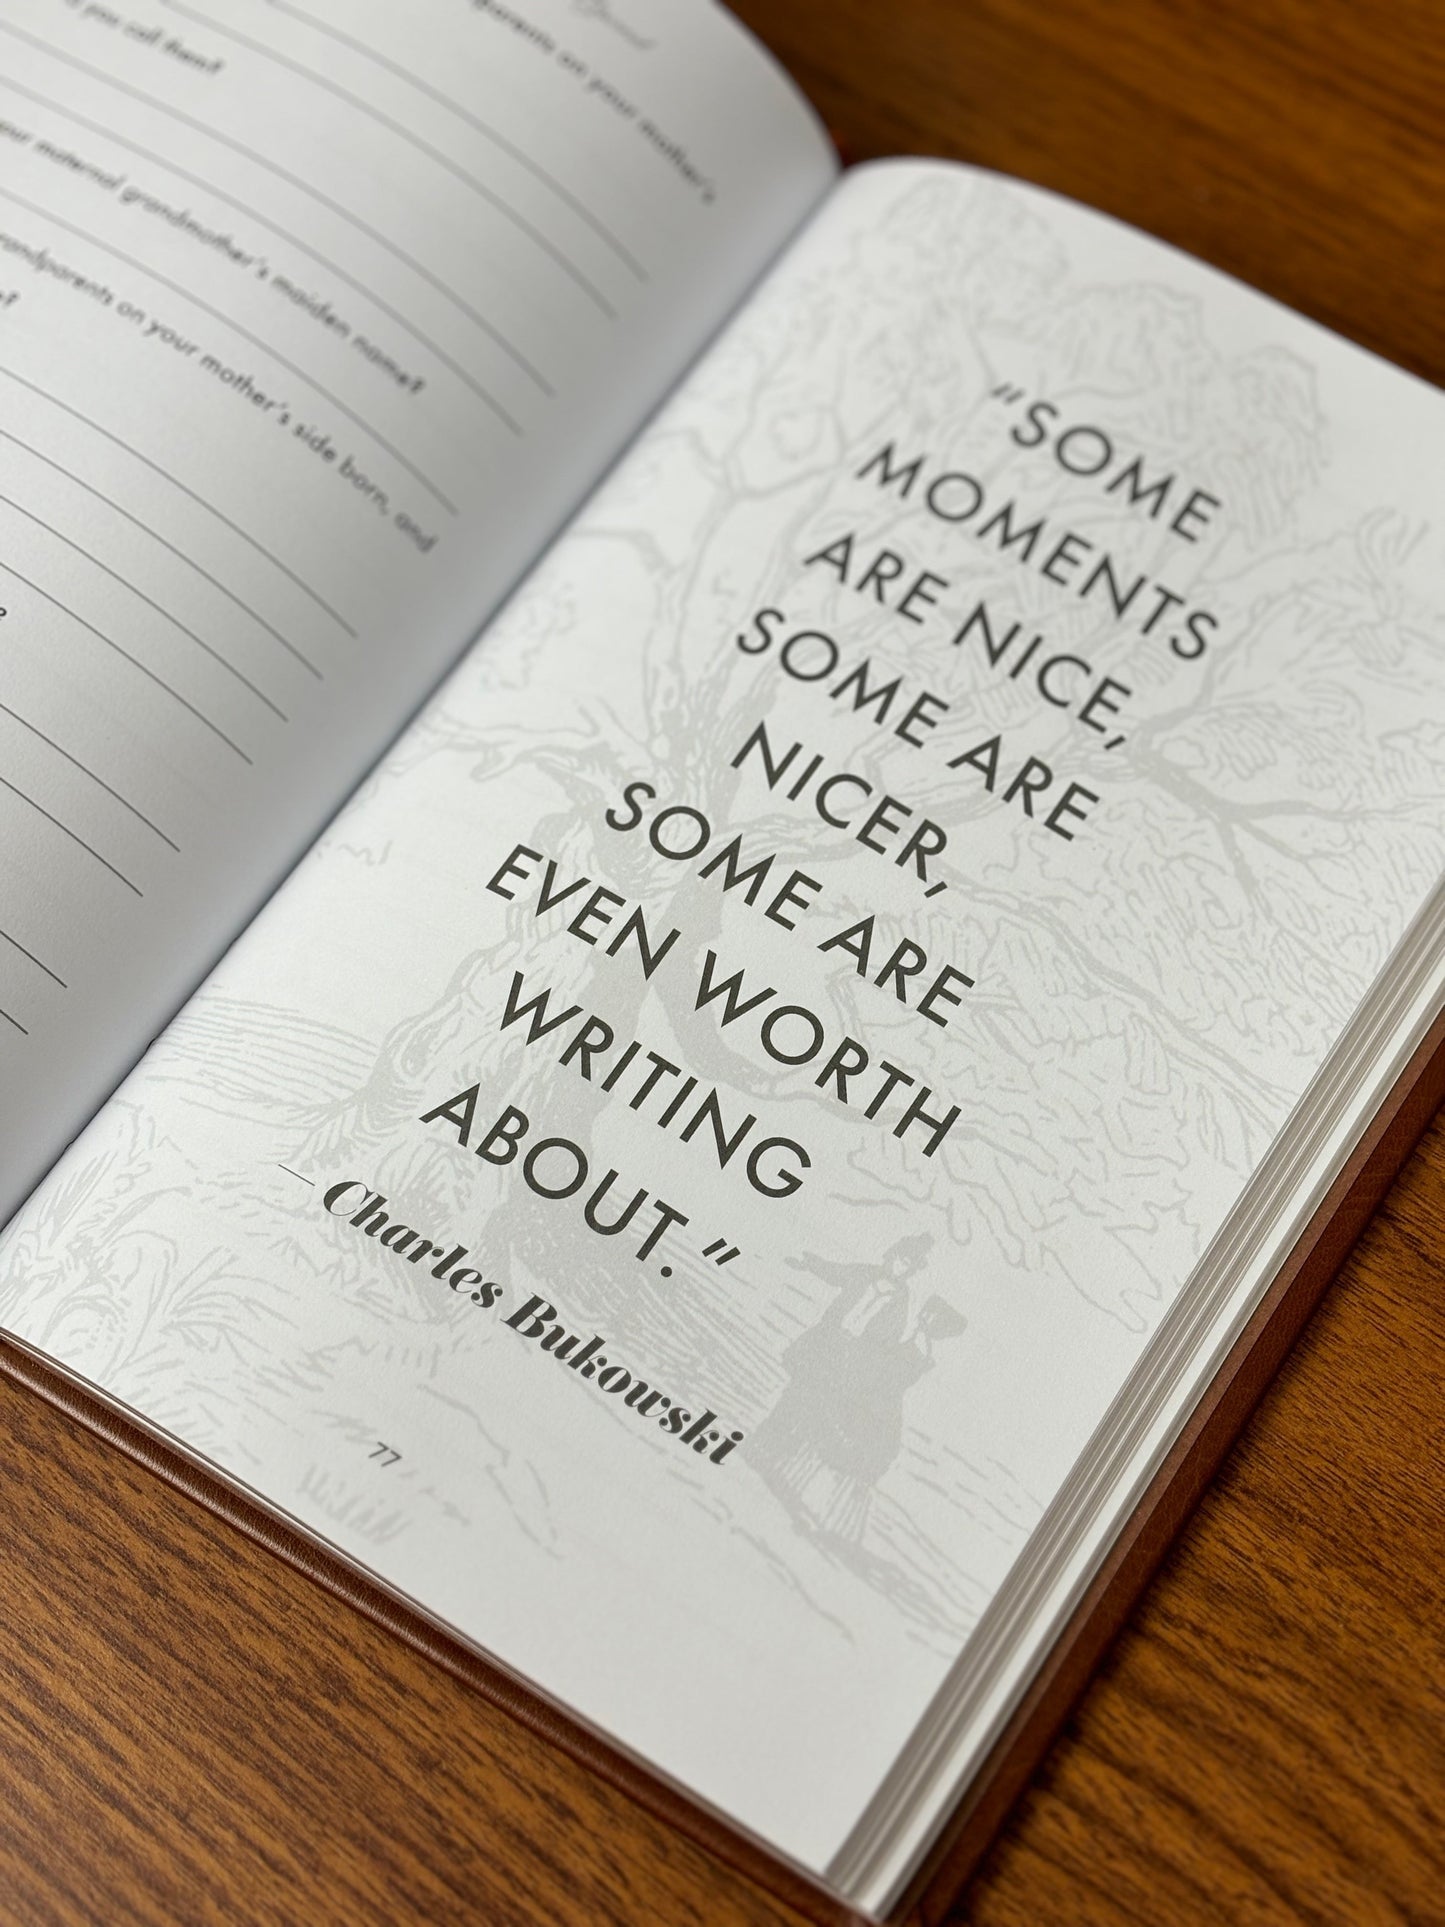 parents on your mother's
you call them?
your maternal grandmother's maiden name?
grandparents on your mother's side born, and
?
?
"SOME
MOMENTS
ARE NICE,
SOME ARE
NICER,
SOME ARE
EVEN WORTH
WRITING
ABOUT."
— Charles Bukowski
77